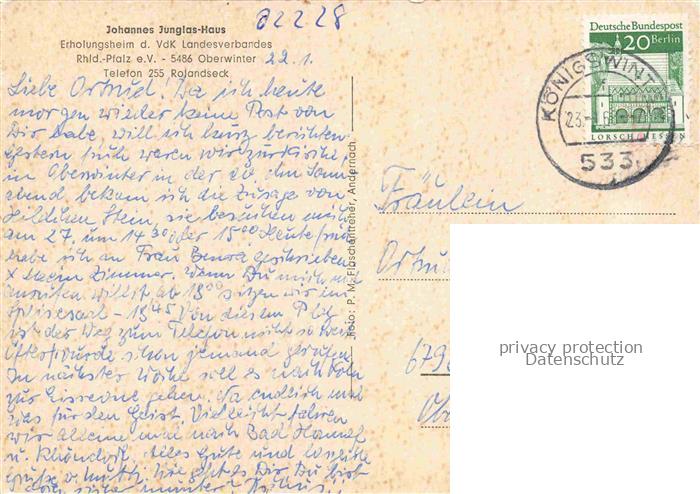 82228
Johannes Junglas-Haus
Erholungsheim d. VdK Landesverbandes
Rhld.-Pfalz e.V. - 5486 Oberwinter
Telefon 255 Rolandseck
22.1.
Liebe Ortrud! Da ich heute
morgen wieder keine Post von
Dir habe, will ich kurz berichten.
Gestern früh waren wir zur Kirche,
in Oberwinter in der ev. Am Sonn
abend bekam ich die Zusage von
Hildchen Stein, sie besuchen mich
am 27. um 14 30 oder 15 00. Heute früh
habe ich an Frau geschrieben
Zimmer. Wenn Du mich mal
anrufen willst ab 18 00 sitzen wir im
Speisesaal - 18 45 Von diesem Platz
ist der Weg zum Telefon nicht so weit
Öfter wurde schon jemand gerufen.
In nächster Woche soll es nach Köln
zur Eisrevue gehen. Na endlich mal
was für den Geist. Vielleicht fahren
wir alleine mal nach Bad Honnef
u. Rhöndorf. Alles Gute und herzliche
Grüße v. Mutti. Wie geht es Dir, Du bist
Foto: P. M. Flaschentreher, Andernach
Deutsche Bundespost
20 Berlin
LORSCH/HESSEN
KÖNIGSWINT
23.
533
Fräulein
Ortrud
privacy protection
Datenschutz